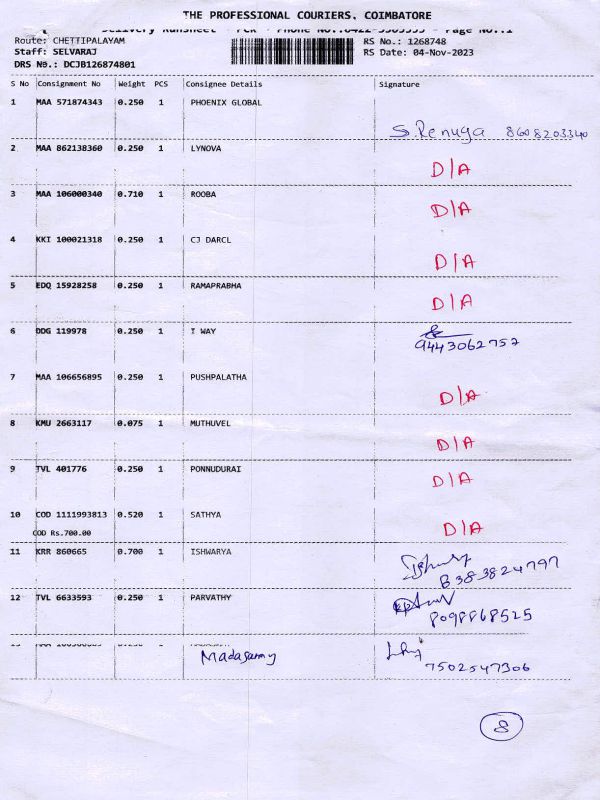 THE PROFESSIONAL COURIERS, COIMBATORE
Delivery Runsheet - PCR - Phone No.:0422-3563555 - Page No.:1
Route: CHETTIPALAYAM RS No.: 1268748
Staff: SELVARAJ RS Date: 04-Nov-2023
DRS No.: DCJB126874801
S No Consignment No Weight PCS Consignee Details Signature
1 MAA 571874343 0.250 1 PHOENIX GLOBAL
S. Renuga 8608203340
2 MAA 862138360 0.250 1 LYNOVA
D/A
3 MAA 106000340 0.710 1 ROOBA
D/A
4 KKI 100021318 0.250 1 CJ DARCL
D/A
5 EDQ 15928258 0.250 1 RAMAPRABHA
D/A
6 DDG 119978 0.250 1 I WAY
9443062752
7 MAA 106656895 0.250 1 PUSHPALATHA
D/A
8 KMU 2663117 0.075 1 MUTHUVEL
D/A
9 TVL 401776 0.250 1 PONNUDURAI
D/A
10 COD 1111993813 0.520 1 SATHYA
COD Rs.700.00 D/A
11 KRR 860665 0.700 1 ISHWARYA
8383824797
12 TVL 6633593 0.250 1 PARVATHY
8098868525
Madasamy
7502547306
8